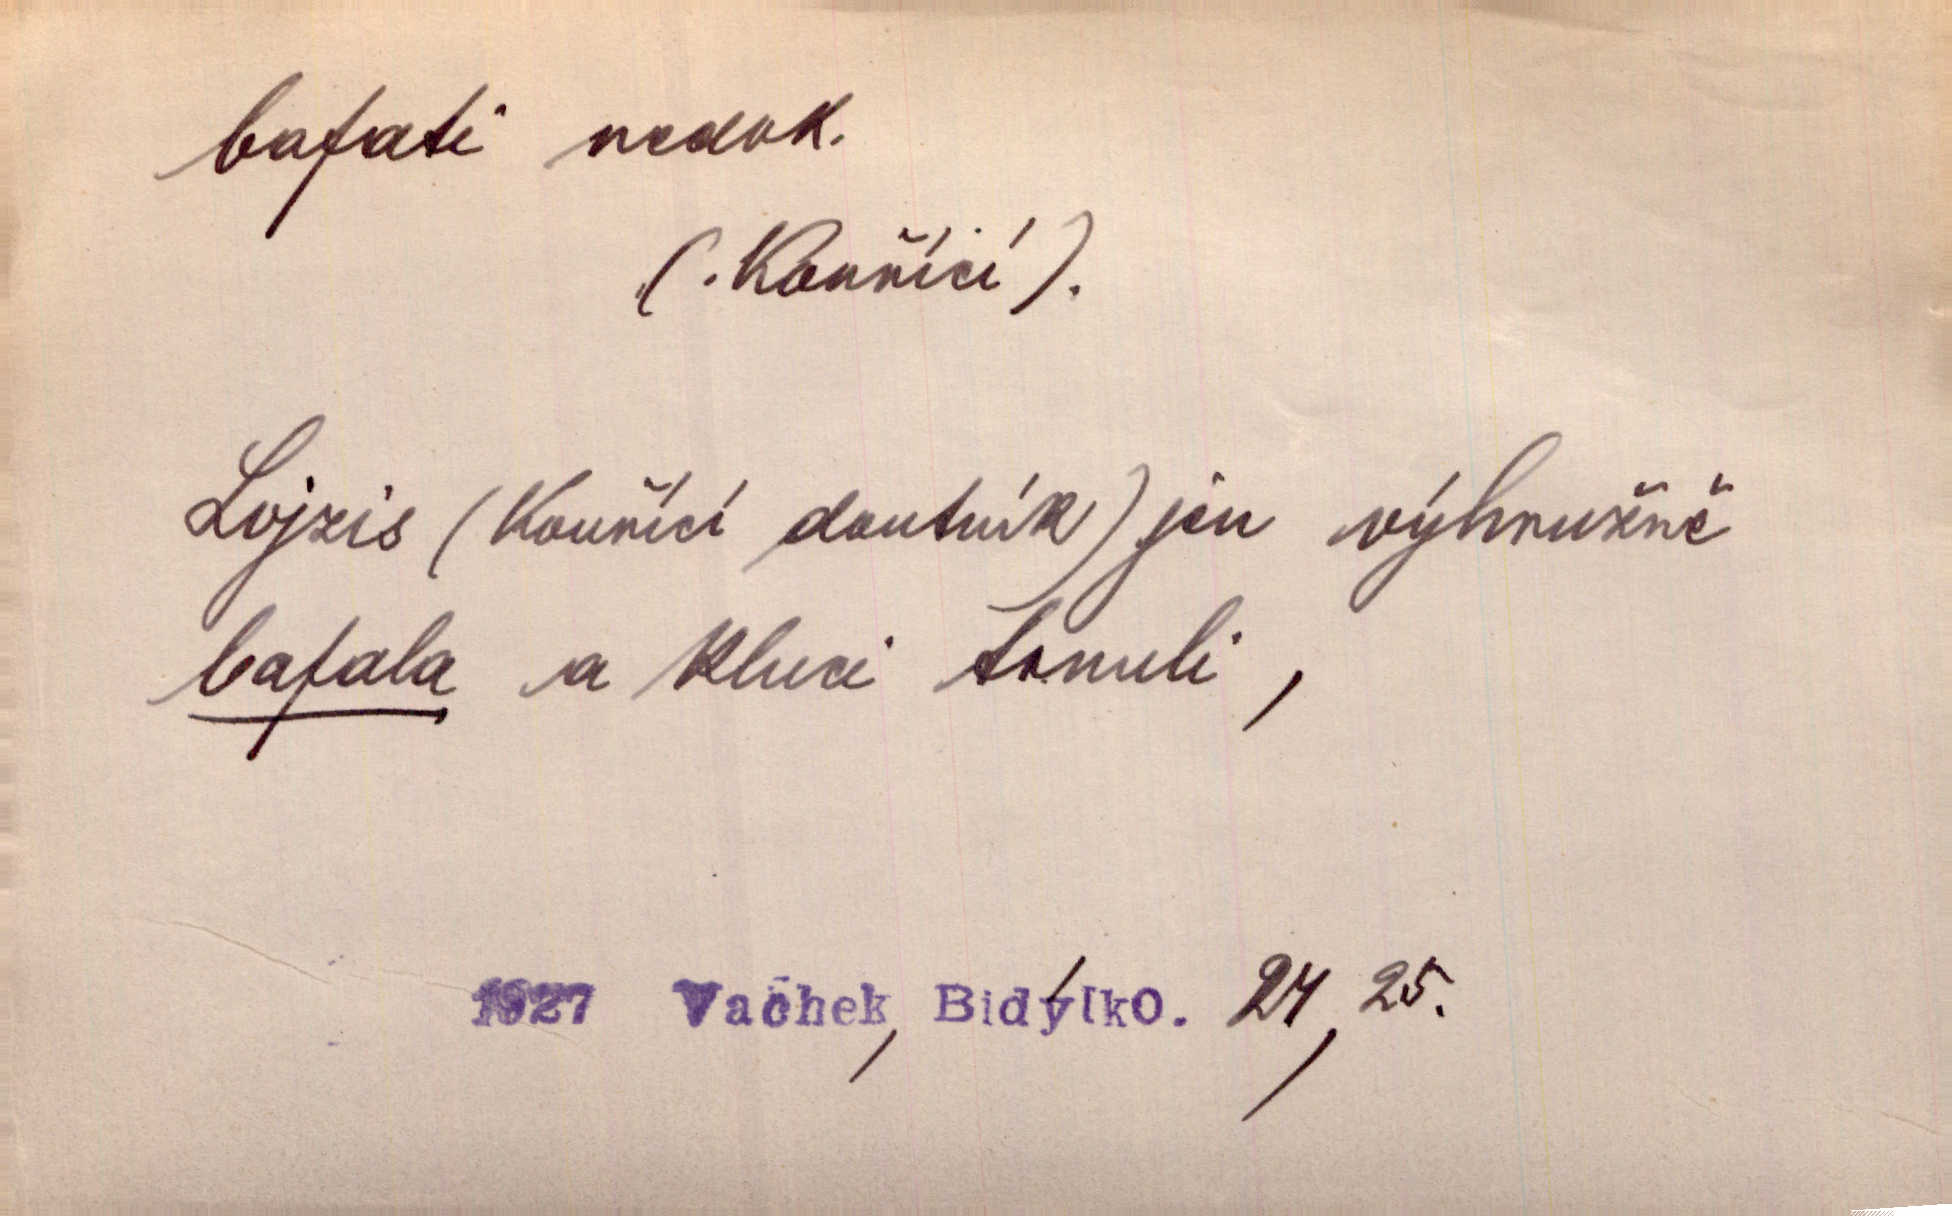 bafati nedok.
(. Kouřící).
Lojzis (kouřící doutník) jen výhružně
bafala a kluci trnuli,
1927 Vachek, Bidýlko. 24, 25.